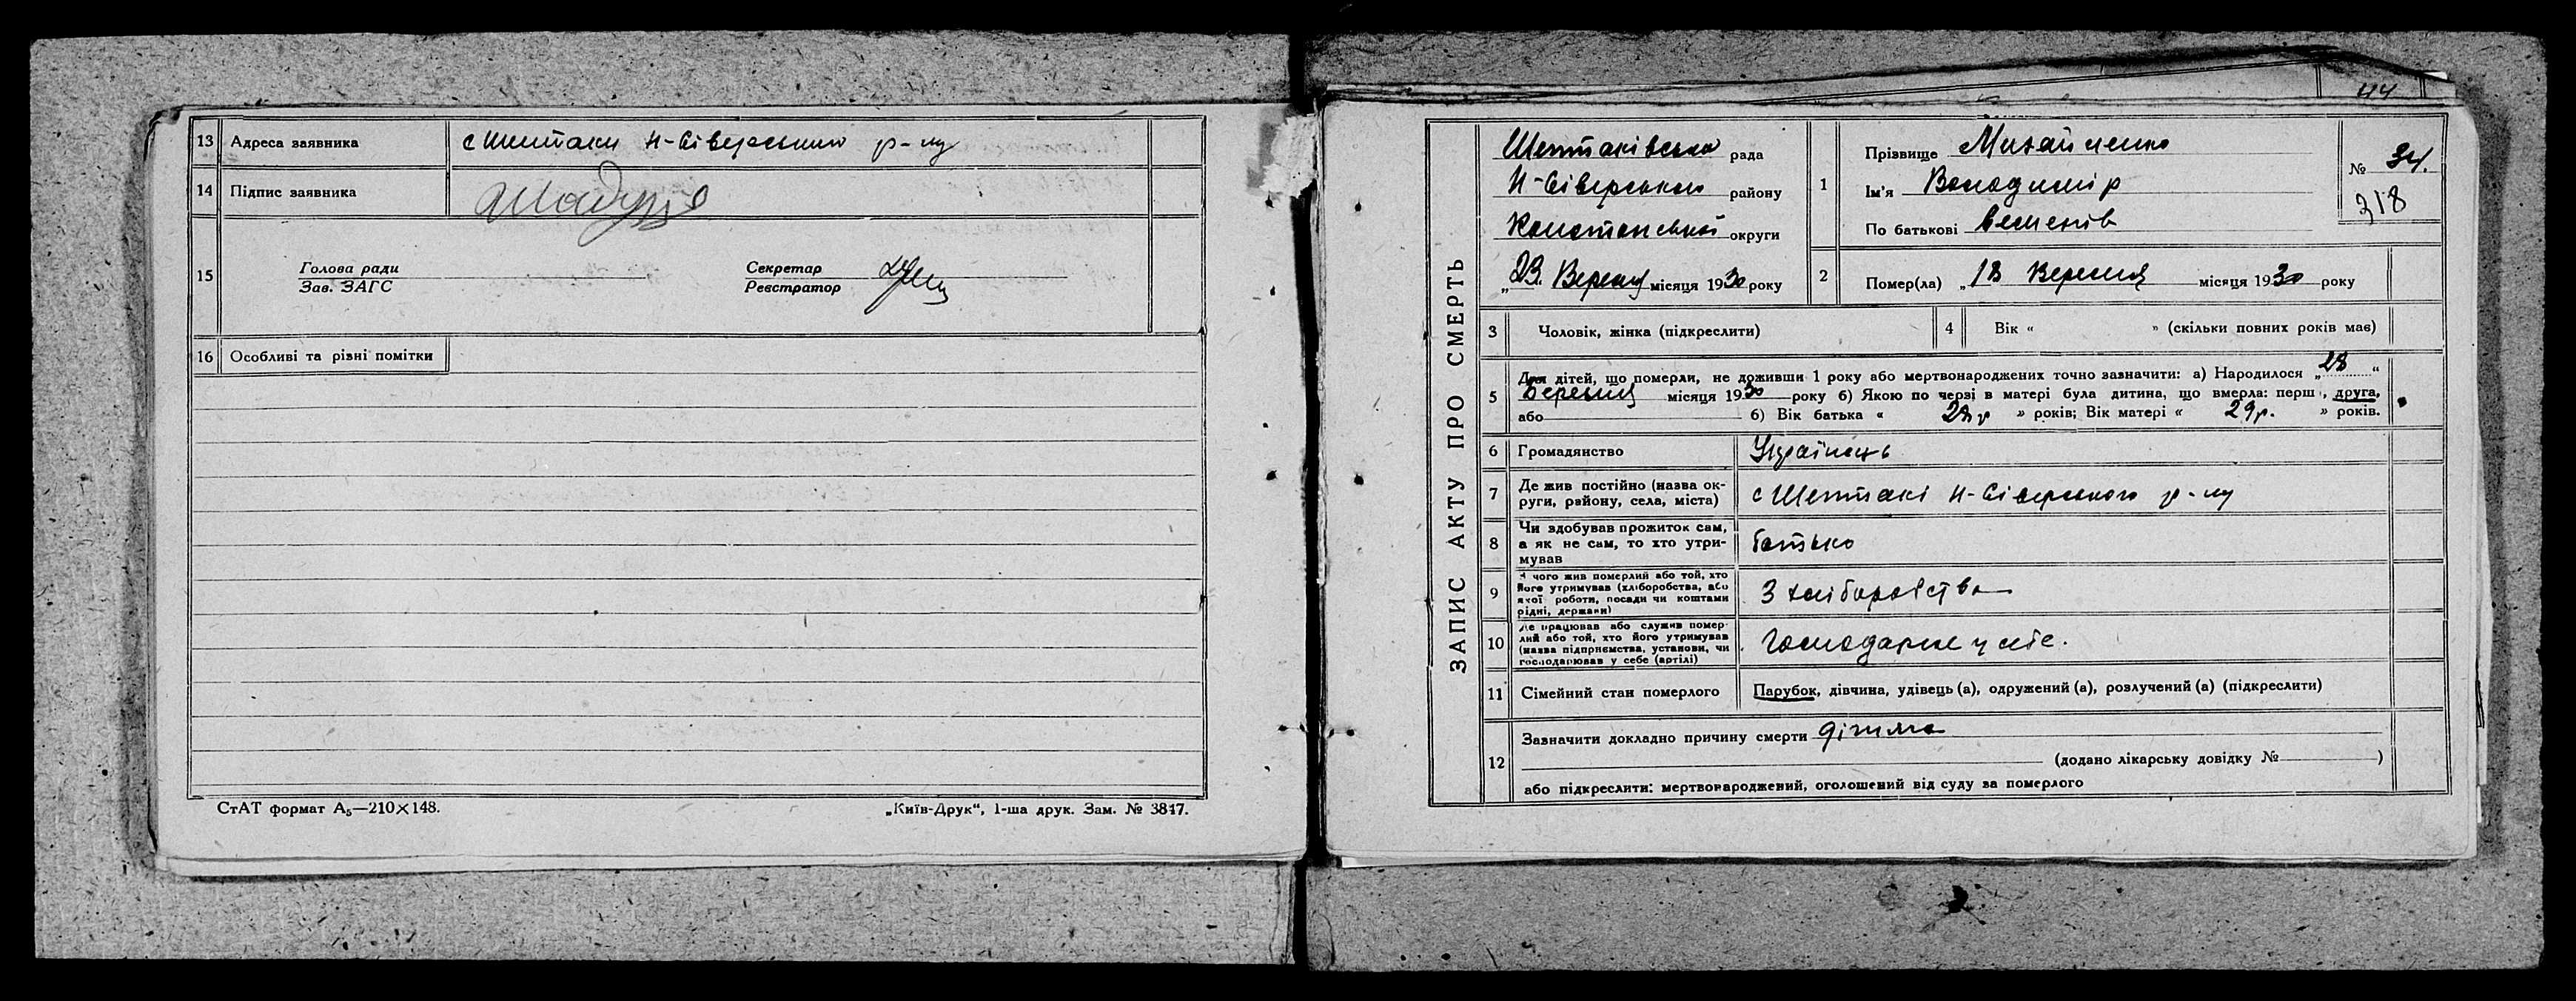 13 Адреса заявника с Шептаки Н-Сіверський р-ну
14 Підпис заявника
15 Голова ради Секретар
Зав. ЗАГС Реєстратор
16 Особливі та різні помітки
СтАТ формат А₅—210×148. „Київ-Друк“, 1-ша друк. Зам. № 3847.
44
ЗАПИС АКТУ ПРО СМЕРТЬ
Шептаківська рада
Н-Сіверського району
округи
„23. Вересня місяця 1930 року
1 Прізвище Михайленко
Ім'я Володимір
По батькові
№ 34.
318
2 Помер(ла) „18 Вересня місяця 1930 року
3 Чоловік, жінка (підкреслити)
4 Вік « » (скільки повних років має)
5 Для дітей, що померли, не доживши 1 року або мертвонароджених точно зазначити: а) Народилося „28“
місяця 1930 року б) Якою по черзі в матері була дитина, що вмерла: перш , друга,
або б) Вік батька « 28 р » років; Вік матері « 29 р. » років.
6 Громадянство Українець
7 Де жив постійно (назва ок-
руги, району, села, міста) с Шептакі Н-Сіверського р-ну
8 Чи здобував прожиток сам,
а як не сам, то хто утри-
мував батько
9 З чого жив померлий або той, хто
його утримував (хліборобства, або
якої роботи, посади чи коштами
рідні, держави) З хліборобства
10 Де працював або служив помер-
лий або той, хто його утримував
(назва підприємства, установи, чи
господарював у себе (артілі) Господарює у себе.
11 Сімейний стан померлого Парубок, дівчина, удівець (а), одружений (а), розлучений (а) (підкреслити)
12 Зазначити докладно причину смерти дітяча
(додано лікарську довідку № )
або підкреслити: мертвонароджений, оголошений від суду за померлого